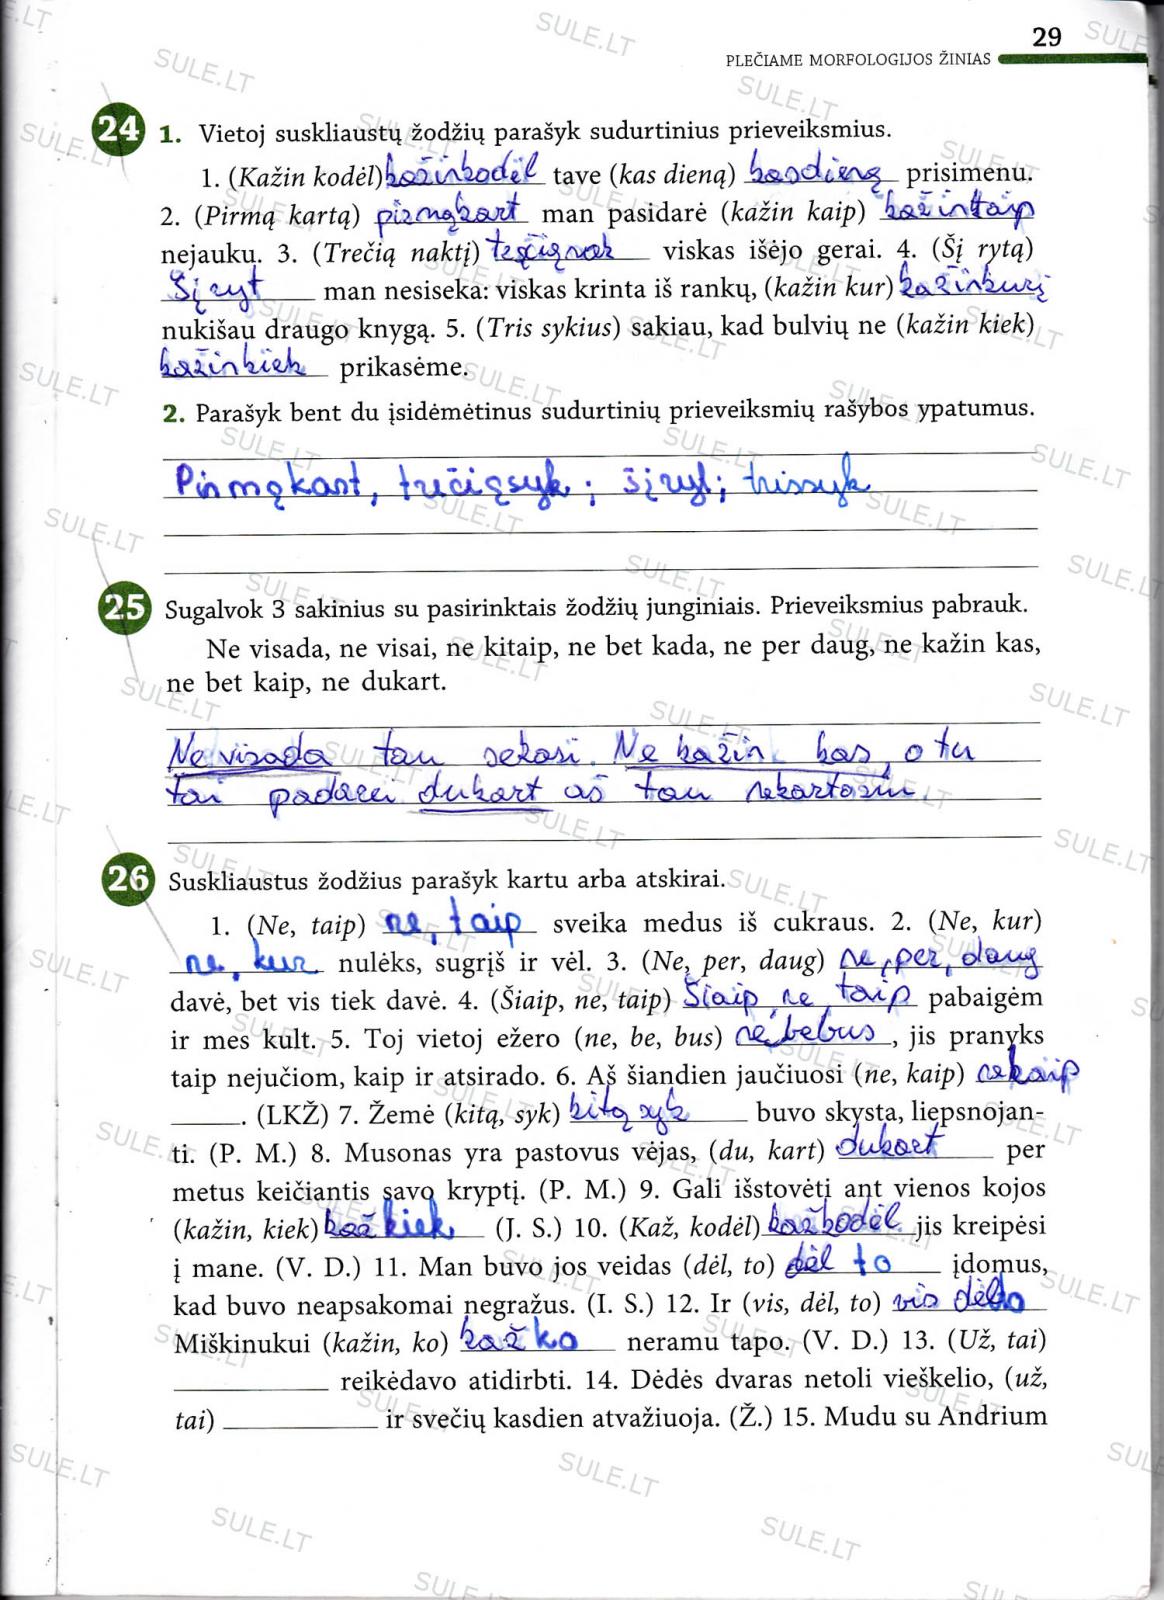 29
PLEČIAME MORFOLOGIJOS ŽINIAS
24 1. Vietoj suskliaustų žodžių parašyk sudurtinius prieveiksmius.
1. (Kažin kodėl) kažinkodėl tave (kas dieną) kasdieną prisimenu.
2. (Pirmą kartą) pirmąkart man pasidarė (kažin kaip) kažinkaip
nejauku. 3. (Trečią naktį) trečiąnak viskas išėjo gerai. 4. (Šį rytą)
Šįryt man nesiseka: viskas krinta iš rankų, (kažin kur) kažinkurį
nukišau draugo knygą. 5. (Tris sykius) sakiau, kad bulvių ne (kažin kiek)
kažinkiek prikasėme.
2. Parašyk bent du įsidėmėtinus sudurtinių prieveiksmių rašybos ypatumus.
Pirmąkart, trečiąsyk; šįryt; trissyk
25 Sugalvok 3 sakinius su pasirinktais žodžių junginiais. Prieveiksmius pabrauk.
Ne visada, ne visai, ne kitaip, ne bet kada, ne per daug, ne kažin kas,
ne bet kaip, ne dukart.
Ne visada tau sekasi. Ne kažin kas, o tu
tai padarei dukart aš tau nekartosiu.
26 Suskliaustus žodžius parašyk kartu arba atskirai.
1. (Ne, taip) ne, taip sveika medus iš cukraus. 2. (Ne, kur)
ne, kur nulėks, sugrįš ir vėl. 3. (Ne, per, daug) ne, per, daug
davė, bet vis tiek davė. 4. (Šiaip, ne, taip) Šiaip, ne, taip pabaigėm
ir mes kult. 5. Toj vietoj ežero (ne, be, bus) nebebus, jis pranyks
taip nejučiom, kaip ir atsirado. 6. Aš šiandien jaučiuosi (ne, kaip) nekaip
. (LKŽ) 7. Žemė (kitą, syk) kitą syk buvo skysta, liepsnojan-
ti. (P. M.) 8. Musonas yra pastovus vėjas, (du, kart) dukart per
metus keičiantis savo kryptį. (P. M.) 9. Gali išstovėti ant vienos kojos
(kažin, kiek) kažkiek (J. S.) 10. (Kaž, kodėl) kažkodėl jis kreipėsi
į mane. (V. D.) 11. Man buvo jos veidas (dėl, to) dėl to įdomus,
kad buvo neapsakomai negražus. (I. S.) 12. Ir (vis, dėl, to) vis dėlto
Miškinukui (kažin, ko) kažko neramu tapo. (V. D.) 13. (Už, tai)
reikėdavo atidirbti. 14. Dėdės dvaras netoli vieškelio, (už,
tai) ir svečių kasdien atvažiuoja. (Ž.) 15. Mudu su Andrium
SULE.LT